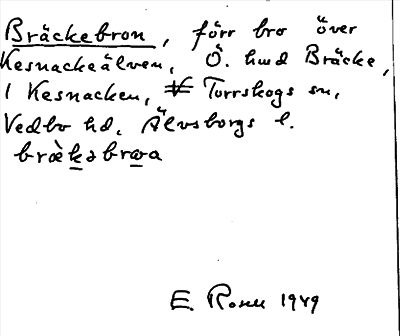 Bräckebron, förr bro över
Kesnackeälven, Ö. hmd Bräcke,
I Kesnacken, Torrskogs sn,
Vedbo hd, Älvsborgs l.
bræ̀kəbrωa
E. Rosell 1949